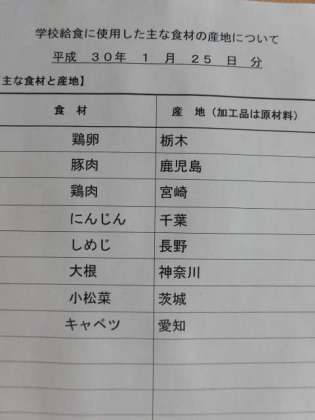 学校給食に使用した主な食材の産地について
平成 30年 1月 25日 分
主な食材と産地】
食 材 産 地（加工品は原材料）
鶏卵 栃木
豚肉 鹿児島
鶏肉 宮崎
にんじん 千葉
しめじ 長野
大根 神奈川
小松菜 茨城
キャベツ 愛知